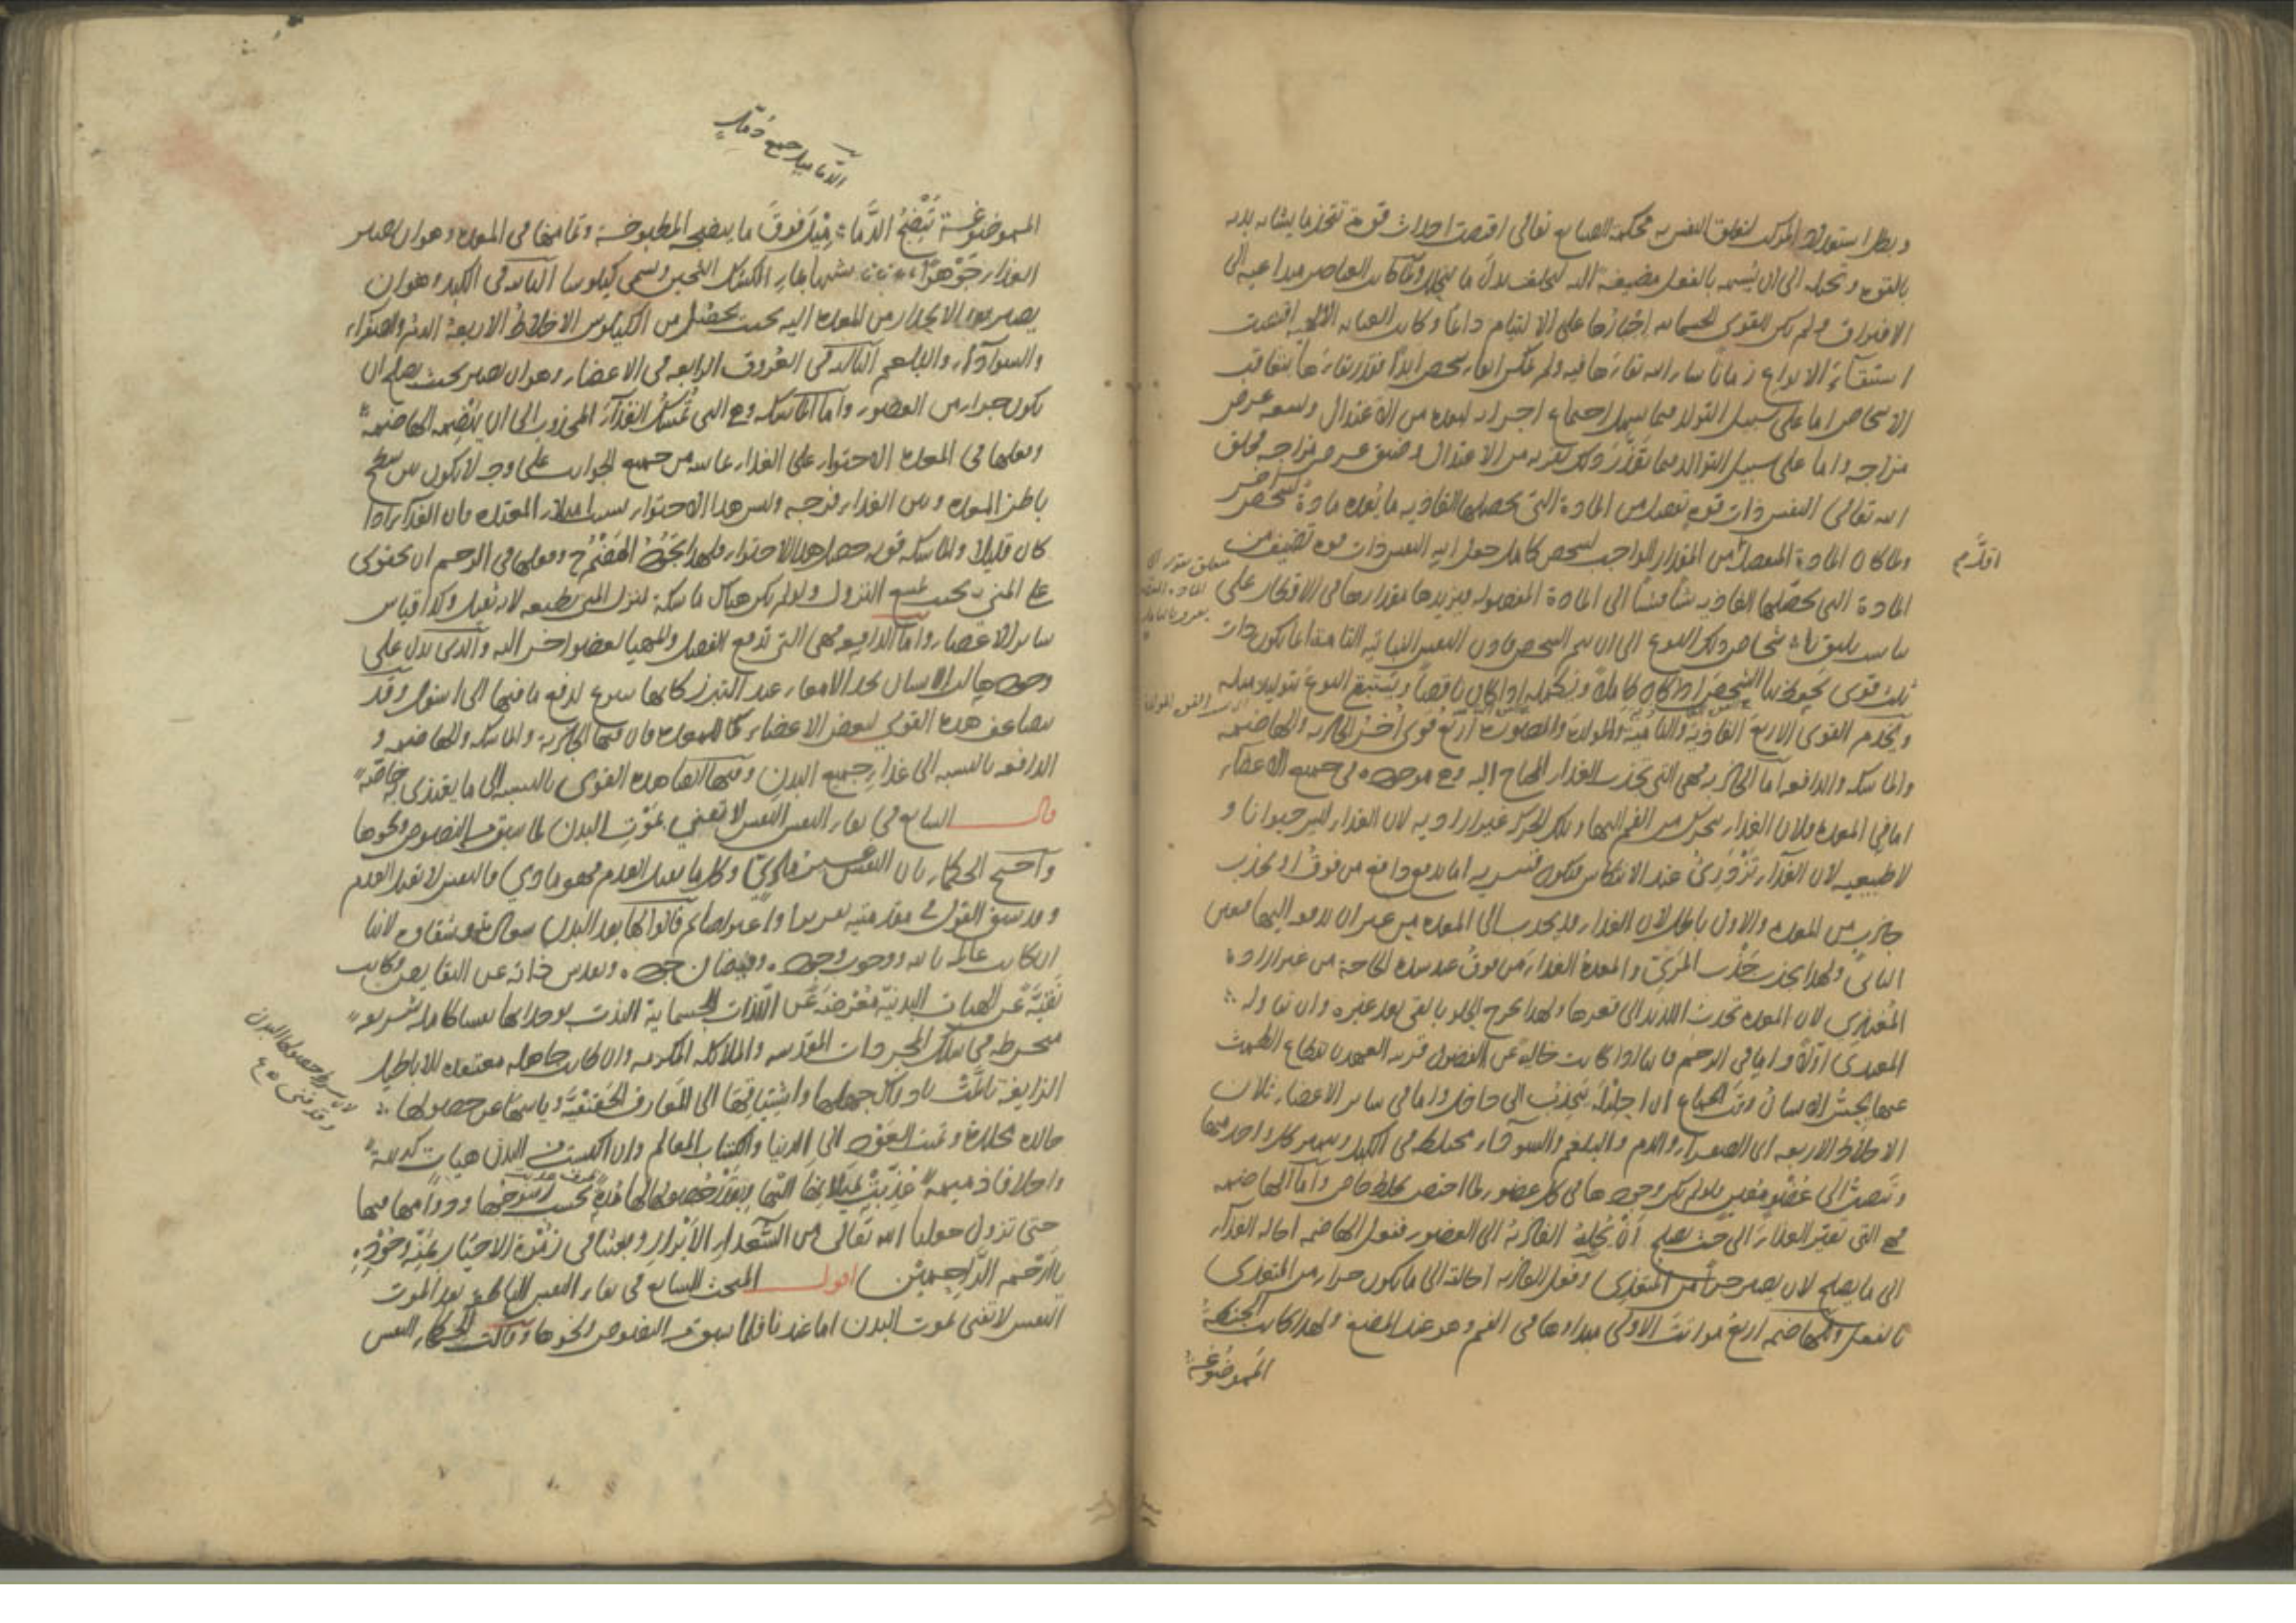 وبطل استعداد المركب لتعلق النفس به فحكمة الصانع تعالى اقتضت احداث قوة تتخذ ما يشابه بدنه
بالقوة وتحيله الى ان يشبهه بالفعل مضيفة اليه ليخلف بدل ما يتحلل ولما كانت العناصر متداعية الى
الافتراق ولم يكن للقوى الجسمانية اجبارها على الالتيام دائما وكانت العناية الالهية اقتضت
استبقاء الانواع زمانا شاء الله بقاءها فيه ولم يمكن ابقاء شخص ابدا فقدر بقاءها بتعاقب
الاشخاص اما على سبيل التولد فيما يسهل اجتماع اجزائه لبعده من الاعتدال وسعة عرض
مزاجه واما على سبيل التوالد فيما تعذر ذلك لقربه من الاعتدال وضيق عرض مزاجه فخلق
الله تعالى النفس ذات قوة تفصل من المادة التي تحصلها الغاذية ما يعده مادة لشخص آخر
ولما كان المادة المنفصلة من المقدار الواجب لشخص كامل جعل الله النفس ذات قوة تضيف من
اقدّم
المادة التي تحصلها الغاذية شيئا فشيئا الى المادة المفصولة فيزيد بها مقدارها في الاقطار على
تناسب يليق باشخاص ذلك النوع الى ان يتم الشخص فاذن النفس النباتية التامة انما يكون ذات
ثلث قوى يحفظ بها الشخص اذا كان كاملا ويكمله اذا كان ناقصا ويستبقى النوع بتوليد مثله
ويخدم القوى الاربع الغاذية والنامية والمولدة والمصورة اربع قوى اخر الجاذبة والهاضمة
والماسكة والدافعة اما الجاذبة فهي التي تجذب الغذاء المحتاج اليه وهي موجودة في جميع الاعضاء
اما في المعدة فلان الغذاء يتحرك من الفم اليها وتلك الحركة غير ارادية لان الغذاء ليس حيوانا و
لا طبيعية لان الغذاء يزدرد عند الانتكاس فتكون قسرية اما بدفع دافع من فوق او بجذب
جاذب من المعدة والاول باطل لان الغذاء قد ينجذب الى المعدة من غير ان يدفع اليها فتعين
الثاني ولهذا يجذب المرئ والمعدة الغذاء من فوق عند شدة الحاجة من غير ارادة
المغتذي لان المعدة تجذب اللذيذ الى قعرها ولهذا يخرج الحلو بالقئ بعد غيره وان تناوله
المغتذي اولا واما في الرحم فلانها اذا كانت خالية عن الفضول قريبة العهد بانقطاع الطمث
عنها يحس الانسان وقت الجماع ان احليله ينجذب الى داخل واما في سائر الاعضاء فلان
الاخلاط الاربعة اي الصفراء والدم والبلغم والسوداء مختلطة في الكبد ويتميز كل واحد منها
وينصب الى عضو معين فلولم يكن وجودها في كل عضو لما اختص بخلط خاص واما الهاضمة
فهي التي تغير الغذاء الى حيث يصلح ان تحيله الغاذية الى العضو ففعل الهاضمة احالة الغذاء
الى ما يصلح لان يصير جزأ من المغتذي وفعل الغاذية احالته الى ما يكون جزء من المغتذي
بالفعل وللهاضمة اربع مراتب الاولى مبداؤها في الفم وهو عند المضغ ولهذا كانت الحنطة
الممضوغة
الدماميل جمع دمّل
الممضوغة تنضج الدماميل فوق ما ينضجه المطبوخة وتمامها في المعدة وهو ان يصير
الغذاء جوهرا شبيها بماء الكشك الثخين ويسمى كيلوسا الثانية في الكبد وهو ان
يصير بعد الانحدار من المعدة اليه بحيث يحصل من الكيلوس الاخلاط الاربعة الدم والصفراء
والسوداء والبلغم الثالثة في العروق الرابعة في الاعضاء وهو ان يصير بحيث يصلح ان
يكون جزء من العضو واما الماسكة وهي التي تمسك الغذاء المجذوب الى ان يهضمه الهاضمة
وفعلها في المعدة الاحتواء على الغذاء مماسة من جميع الجوانب على وجه لا يكون بين سطح
باطن المعدة وبين الغذاء فرجة وليس هذا الاحتواء بسبب امتلاء المعدة فان الغذاء اذا
كان قليلا والماسكة قوية حصل هذا الاحتواء ولهذا يجود الهضم وفعلها في الرحم ان يحتوى
على المني بحيث يمنع النزول ولولم يكن هناك ماسكة لنزل المني بطبعه لانه ثقيل وكذا قياس
سائر الاعضاء واما الدافعة فهي التي تدفع الفضل والمهيا لعضو آخر اليه والذي يدل على
وجودها ان الانسان يجد الامعاء عند التبرز كانها تنزع لدفع ما فيها الى اسفل وقد
يتضاعف هذه القوى لبعض الاعضاء كالمعدة فان فيها الجاذبة والماسكة والهاضمة و
الدافعة بالنسبة الى غذاء جميع البدن وفيها ايضا هذه القوى بالنسبة الى ما يغتذى به خاصة
قال السابع في بقاء النفس النفس لا تفنى بموت البدن لما سبق من النصوص ونحوها
واحتج الحكماء بان النفس غير مادي وكل ما يقبل العدم فهو مادي فالنفس لا تقبل العدم
وقد سبق القول في مقدمتيه تقريرا واعتراضا ثم قالوا لها بعد البدن سعادة وشقاوة لانها
ان كانت عالمة بالله ووجوب وجوده وفيضان جوده وتقدس ذاته عن النقايص وكانت
نقية عن الهيات البدنية معرضة عن اللذات الجسمانية التذت بوجدانها نفسا كاملة شريفة
منخرطة في سلك المجردات المقدسة والملائكة المكرمة وان كانت جاهلة معتقدة للاباطيل
الزايفة تالمت بادراك جهلها واشتياقها الى المعارف الحقيقية وياسها عن حصولها
خالدة مخلدة وتمنت العود الى الدنيا واكتساب المعالم وان اكتسبت من البدن هيات كريهة
واخلاقا ذميمة عذبت بميلانها اليها وتعذر حصولها لها مدة بحسب رسوخها ودوامها فيها
حتى تزول جعلنا الله تعالى من السعداء الابرار وبعثنا في زمرة الاخيار بمنه وجوده
يا ارحم الراحمين اقول المبحث السابع في بقاء النفس الناطقة بعد الموت
النفس لا تفنى بموت البدن اما عندنا فلما سبق من النصوص ونحوها وقالت الحكماء النفس